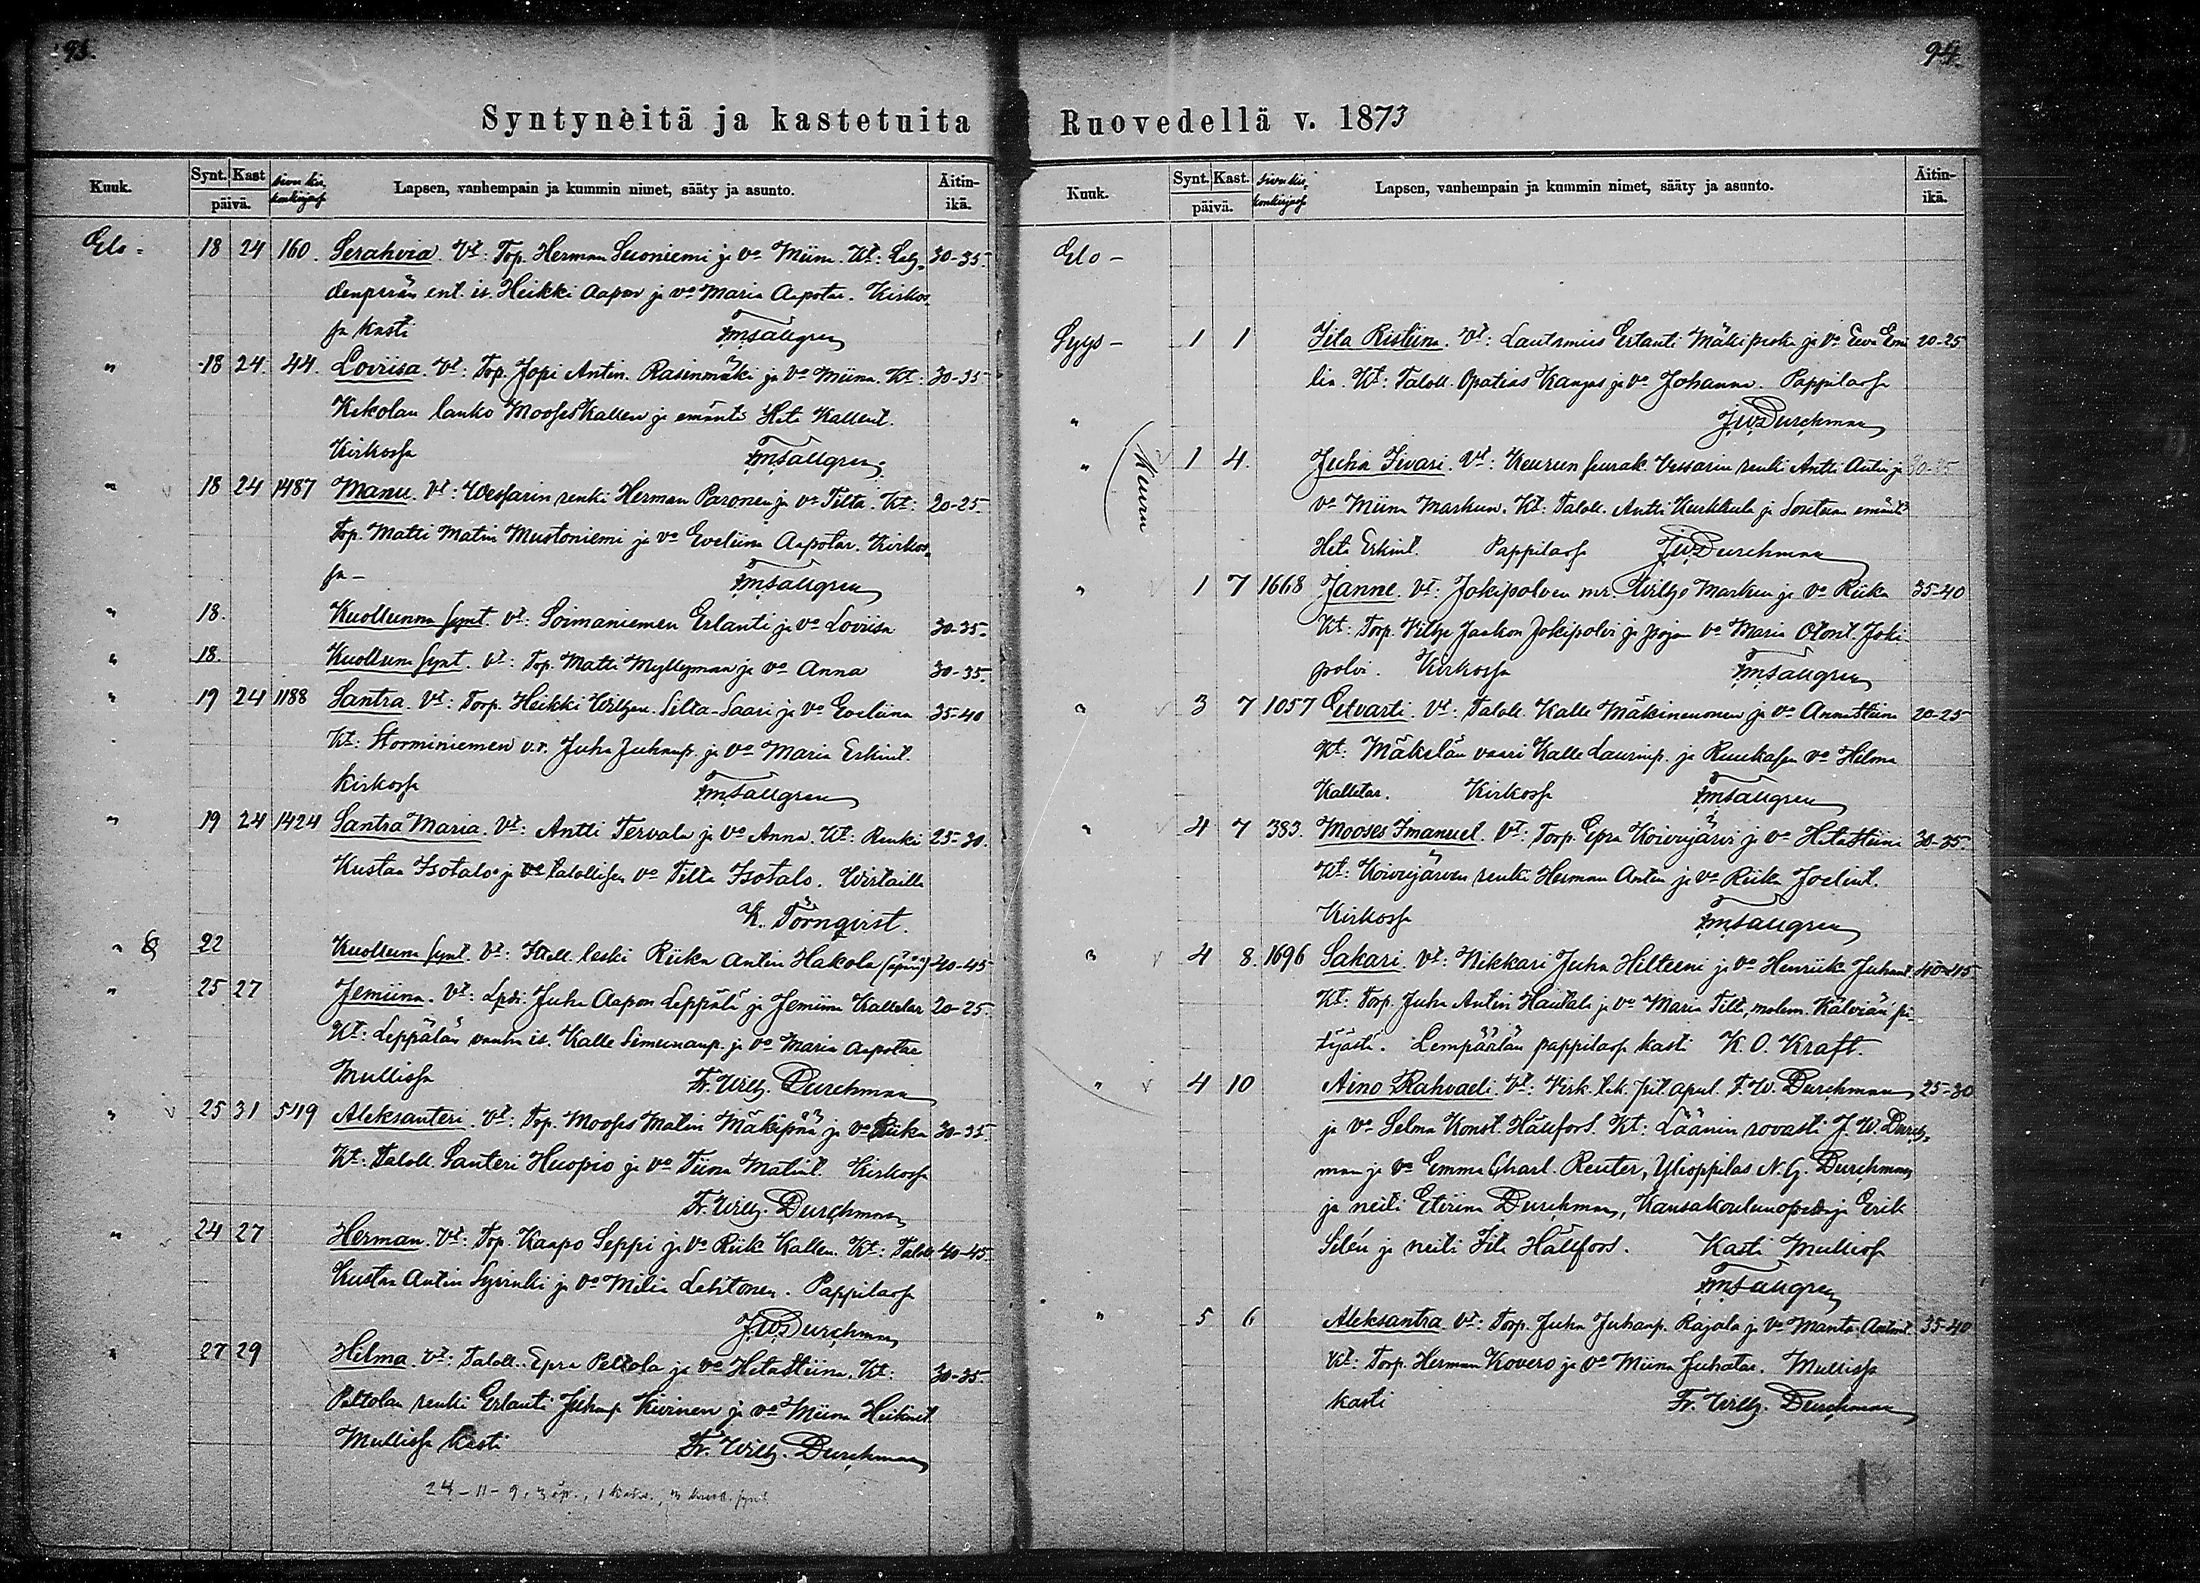 93.
Syntyneitä ja kastetuita
Kuuk. Synt. Kast päivä. sivu kirkonkirjassa Lapsen, vanhempain ja kummin nimet, sääty ja asunto. Äitin-ikä.
Elo - 18 24 160. Serahvia. Vt: Torp. Herman Suoniemi ja vo Miina. Kt: 30-35.
ent. is. Heikki Aapon ja vo Maria Aapotar. Kirkos-
sa kasti FMSallgren
" 18 24 44. Loviisa. Vt: Torp. Jopi Antin. Rasinmäki ja vo Miina. Kt: 30-35
Kekolan lanko Mooses Kallen ja emäntä Heta Kallent.
Kirkossa FMSallgren
" 18 24 1487 Manu. Vt: Wessarin renki Herman Paronen ja vo Tilta. Kt: 20-25.
Torp. Matti Matin Mustoniemi ja vo Eveliina Aapotar. Kirkos-
sa - FMSallgren
" 18. Kuolluna synt. Vt: Soimaniemen Erlanti ja vo Loviisa 30-35.
" 18. Kuolluna synt. Vt: Torp. Matti Myllymaa ja vo Anna 30-35.
" 19 24 1188 Santra. Vt: Torp. Heikki Wilhen. Silta-Saari ja vo Eveliina 35-40
Kt: Storminiemen v.r. Juha Juhanp. ja vo Maria Erkint.
Kirkossa FMSallgren
" 19 24 1424 Santra Maria. Vt: Antti Tervala ja vo Anna. Kt: Renki 25-30.
Kustaa Isotalo ja talollisen vo Tilta Isotalo. Wirtailla
K. Törnqvist.
" 22 Kuolluna synt. Vt: leski Riika Antin Hakola (äpärä) 40-45
" 25 27 Jemiina. Vt: Juha Aapon Leppälä ja Jemiina Kalletar 20-25.
Kt: Leppälän vanha is. Kalle Simunanp. ja vo Maria Aapotar
Mullissa Fr. Wilh. Durchman
" 25 31 549 Aleksanteri. Vt: Torp. Mooses Matin Mäkipää ja vo Riika 30-35.
Kt: Taloll. Santeri Huopio ja vo Tiina Matint. Kirkossa
Fr. Wilh. Durchman
" 24 27 Herman. Vt: Torp. Kaapo Seppi ja vo Riik Kallen. Kt: Taloll. 40-45.
Kustaa Antin Syvinki ja vo Milia Lehtonen. Pappilassa
JWDurchman
" 27 29 Hilma. Vt: Taloll. Epra Peltola ja vo Heta Stiina. Kt: 30-35.
Peltolan renki Erlanti Juhanp. Kivinen ja vo Miina Heikint.
Mullissa kasti Fr. Wilh. Durchman
24 - 11 - 9, 3 äp., 1 kaks., 3 kuoll. synt
94.
Ruovedellä v. 1873
Kuuk. Synt. Kast. päivä. sivu kirkonkirjassa Lapsen, vanhempain ja kummin nimet, sääty ja asunto. Äitin-ikä.
Elo -
Syys - 1 1 Iita Ristiina. Vt: Lautamies Erlanti Mäkipeska ja vo Eeva Emi 20-25
lia. Kt: Taloll. Opatias Kangas ja vo Johanna. Pappilassa
" JWDurchman
" (Keuru 1 4. Juha Iivari. Vt: Keurun seurak. Vessarin renki Antti Antin ja
vo Miina Markun. Kt: Taloll. Antti Kurkkula ja emäntä
Heta Erkint. Pappilassa JWDurchman
" 1 7 1668 Janne. Vt: Jokipolven mr. Wilhjo Markun ja vo Riika 35-40
Kt: Torp. Vilhjo Jaakon Jokipolvi ja pojan vo Maria Otont. Joki-
polvi. Kirkossa FMSallgren
" 3 7 1057 Eetvarti. Vt: Taloll. Kalle Mäkineuvonen ja vo Anna Stiina 20-25
Kt: Mäkelän vaari Kalle Laurinp. ja Ruukasen vo Helma
Kalletar. Kirkossa FMSallgren
" 4 7 383. Mooses Imanuel. Vt: Torp. Epra Koivujärvi ja vo Heta Stiina 30-35.
Kt: Koivujärven renki Herman Antin ja vo Riika Joelint.
Kirkossa FMSallgren
" 4 8. 1696 Sakari. Vt: Nikkari Juha Hilteeni ja vo Henriika Juhant. 40-45
Kt: Torp. Juha Antin Hautala ja vo Maria Tilta, molem. Kälviän pi-
täjästä. Lempäälän pappilassa kasti K. O. Kraft.
" 4 10 Aino Rahvaeli. Vt: Virk. tek. pit. apul. F. W. Durchman 25-30
ja vo Selma Konst. Hällfors. Kt: Läänin rovasti J. W. Durch-
man ja vo Emma Charl. Reuter, Ylioppilas N. G. Durchman
ja neiti Eteriina Durchman, Kansakoulunopettaja Erik
Silén ja neiti Iita Hällfors. Kasti Mullissa
FMSallgren
" 5 6 Aleksantra. Vt: Torp. Juha Juhanp. Rajala ja vo Manta Antint. 35-40
Kt: Torp. Herman Kovero ja vo Miina Juhatar. Mullissa
kasti Fr. Wilh. Durchman